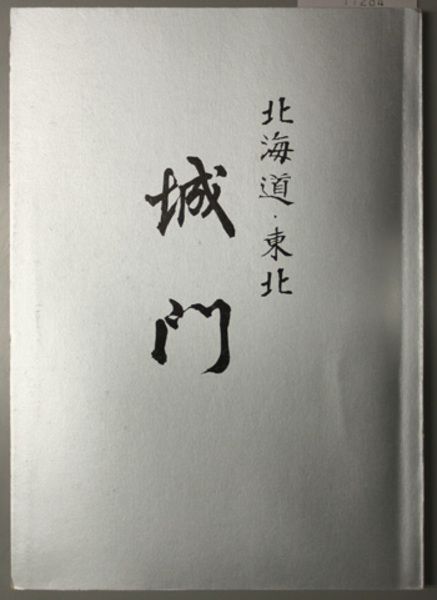 北海道・東北
城門